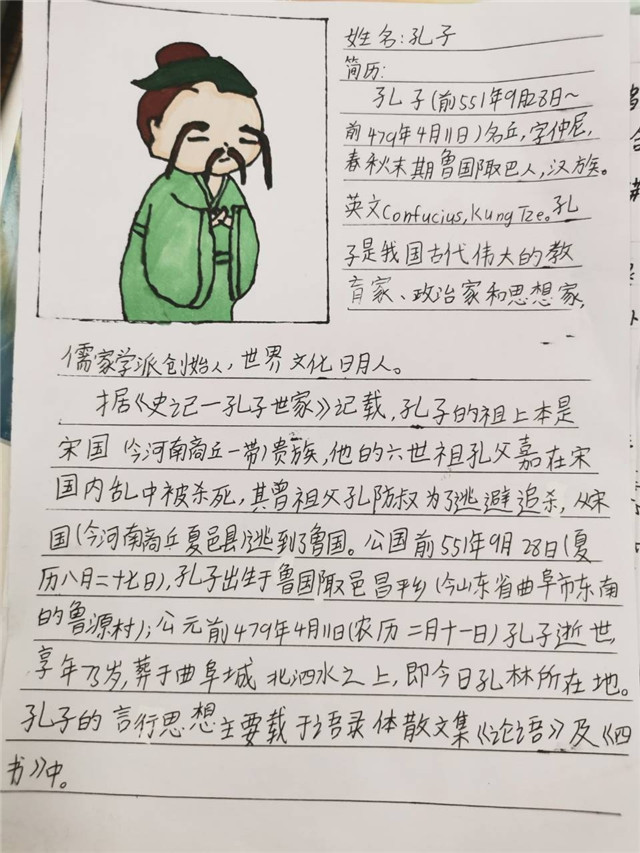 姓名:孔子
简历:
孔子(前551年9月28日~
前479年4月11日)名丘,字仲尼,
春秋末期鲁国陬巴人,汉族。
英文Confucius,Kung Tze。孔
子是我国古代伟大的教
育家、政治家和思想家,
儒家学派创始人,世界文化名人。
才居《史记一孔子世家》记载,孔子的祖上本是
宋国 今河南商丘一带)贵族,他的六世祖孔父嘉在宋
国内乱中被杀死,其曾祖父孔防叔为了逃避追杀,从宋
国(今河南商丘夏邑县)逃到了鲁国。公国前551年9月28日(夏
历八月二十七日),孔子出生于鲁国陬邑昌平乡(今山东省曲阜市东南
的鲁源村);公元前479年4月11日(农历二月十一日)孔子逝世,
享年73岁,葬于曲阜城北泗水之上,即今日孔林所在地。
孔子的言行思想主要载于语录体散文集《论语》及《四
书》中。